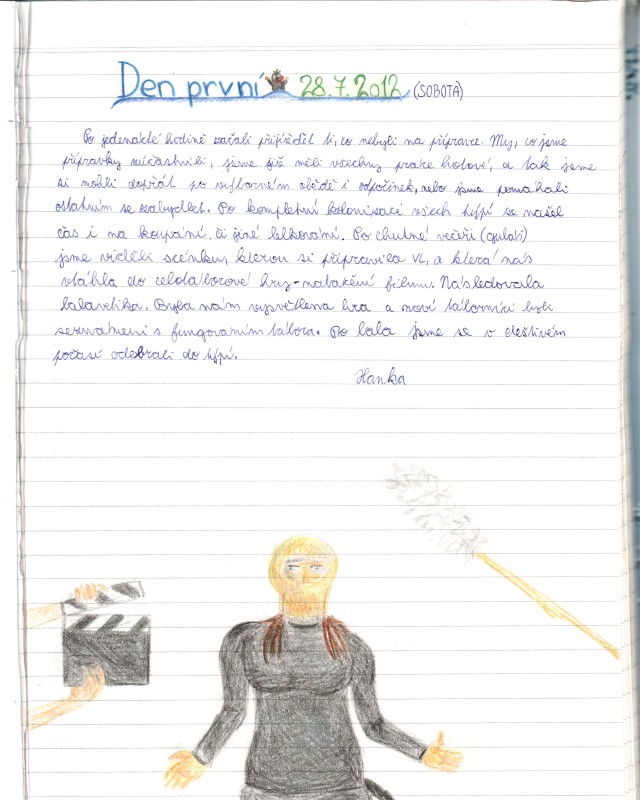 Den první 28.7.2012 (SOBOTA)
Po jedenácté hodině začali přijíždět ti, co nebyli na přípravce. My, co jsme
přípravky zúčastnili, jsme již měli všechny práce hotové, a tak jsme
si mohli dopřát po výborném obědě i odpočinek, nebo jsme pomáhali
ostatním se zabydlet. Po kompletní kolonizaci všech týpí se našel
čas i na koupání, či jiné lelkování. Po chutné večeři (guláš)
jsme viděli scénku, kterou si připravila VL, a která nás
vtáhla do celotáborové hry-natáčení filmu. Následovala
Byla nám vysvětlena hra a noví táborníci byli
seznámeni s fungováním tábora. Po jsme se v deštivém
počasí odebrali do týpí.
Hanka